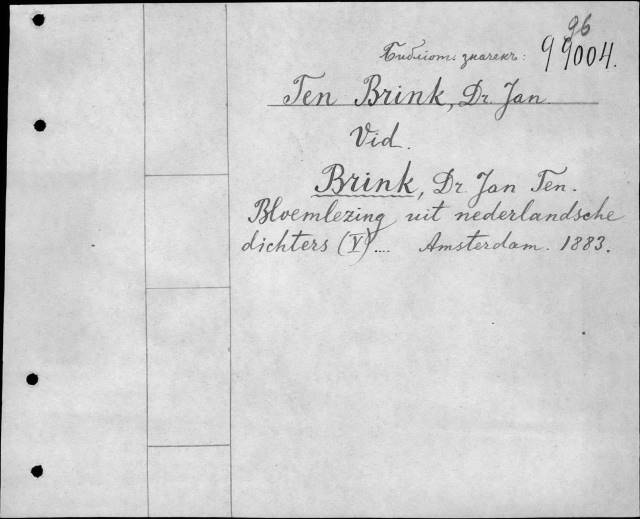 96
Библіот. значекъ: 99004.
Ten Brink, Dr. Jan.
Vid.
Brink, Dr. Jan Ten.
Bloemlezing uit nederlandsche
dichters (V).... Amsterdam. 1883.